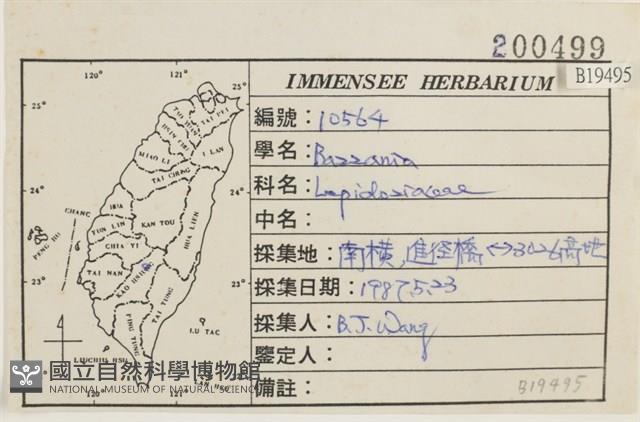 200499
B19495
IMMENSEE HERBARIUM
編號：10564
學名：Bazzania
科名：Lepidoziaceae
中名：
採集地：南橫，進徑橋↔3026高地
採集日期：1987.5.23
採集人：B.J. Wang
鑒定人：
備註：
B19495
120°
121°
25°
25°
TAI PEI
I LAN
MIAO LI
TAI CHUNG
24°
24°
CHANG
HUA
NAN TOU
YUN LIN
HUA LIEN
PENG HU
CHIA YI
TAI NAN
KAO HSIUNG
23°
23°
TAI TUNG
PING TUNG
LU TAO
LIUCHIU HSU
LAN HSU
120°
121°
國立自然科學博物館
NATIONAL MUSEUM OF NATURAL SCIENCE